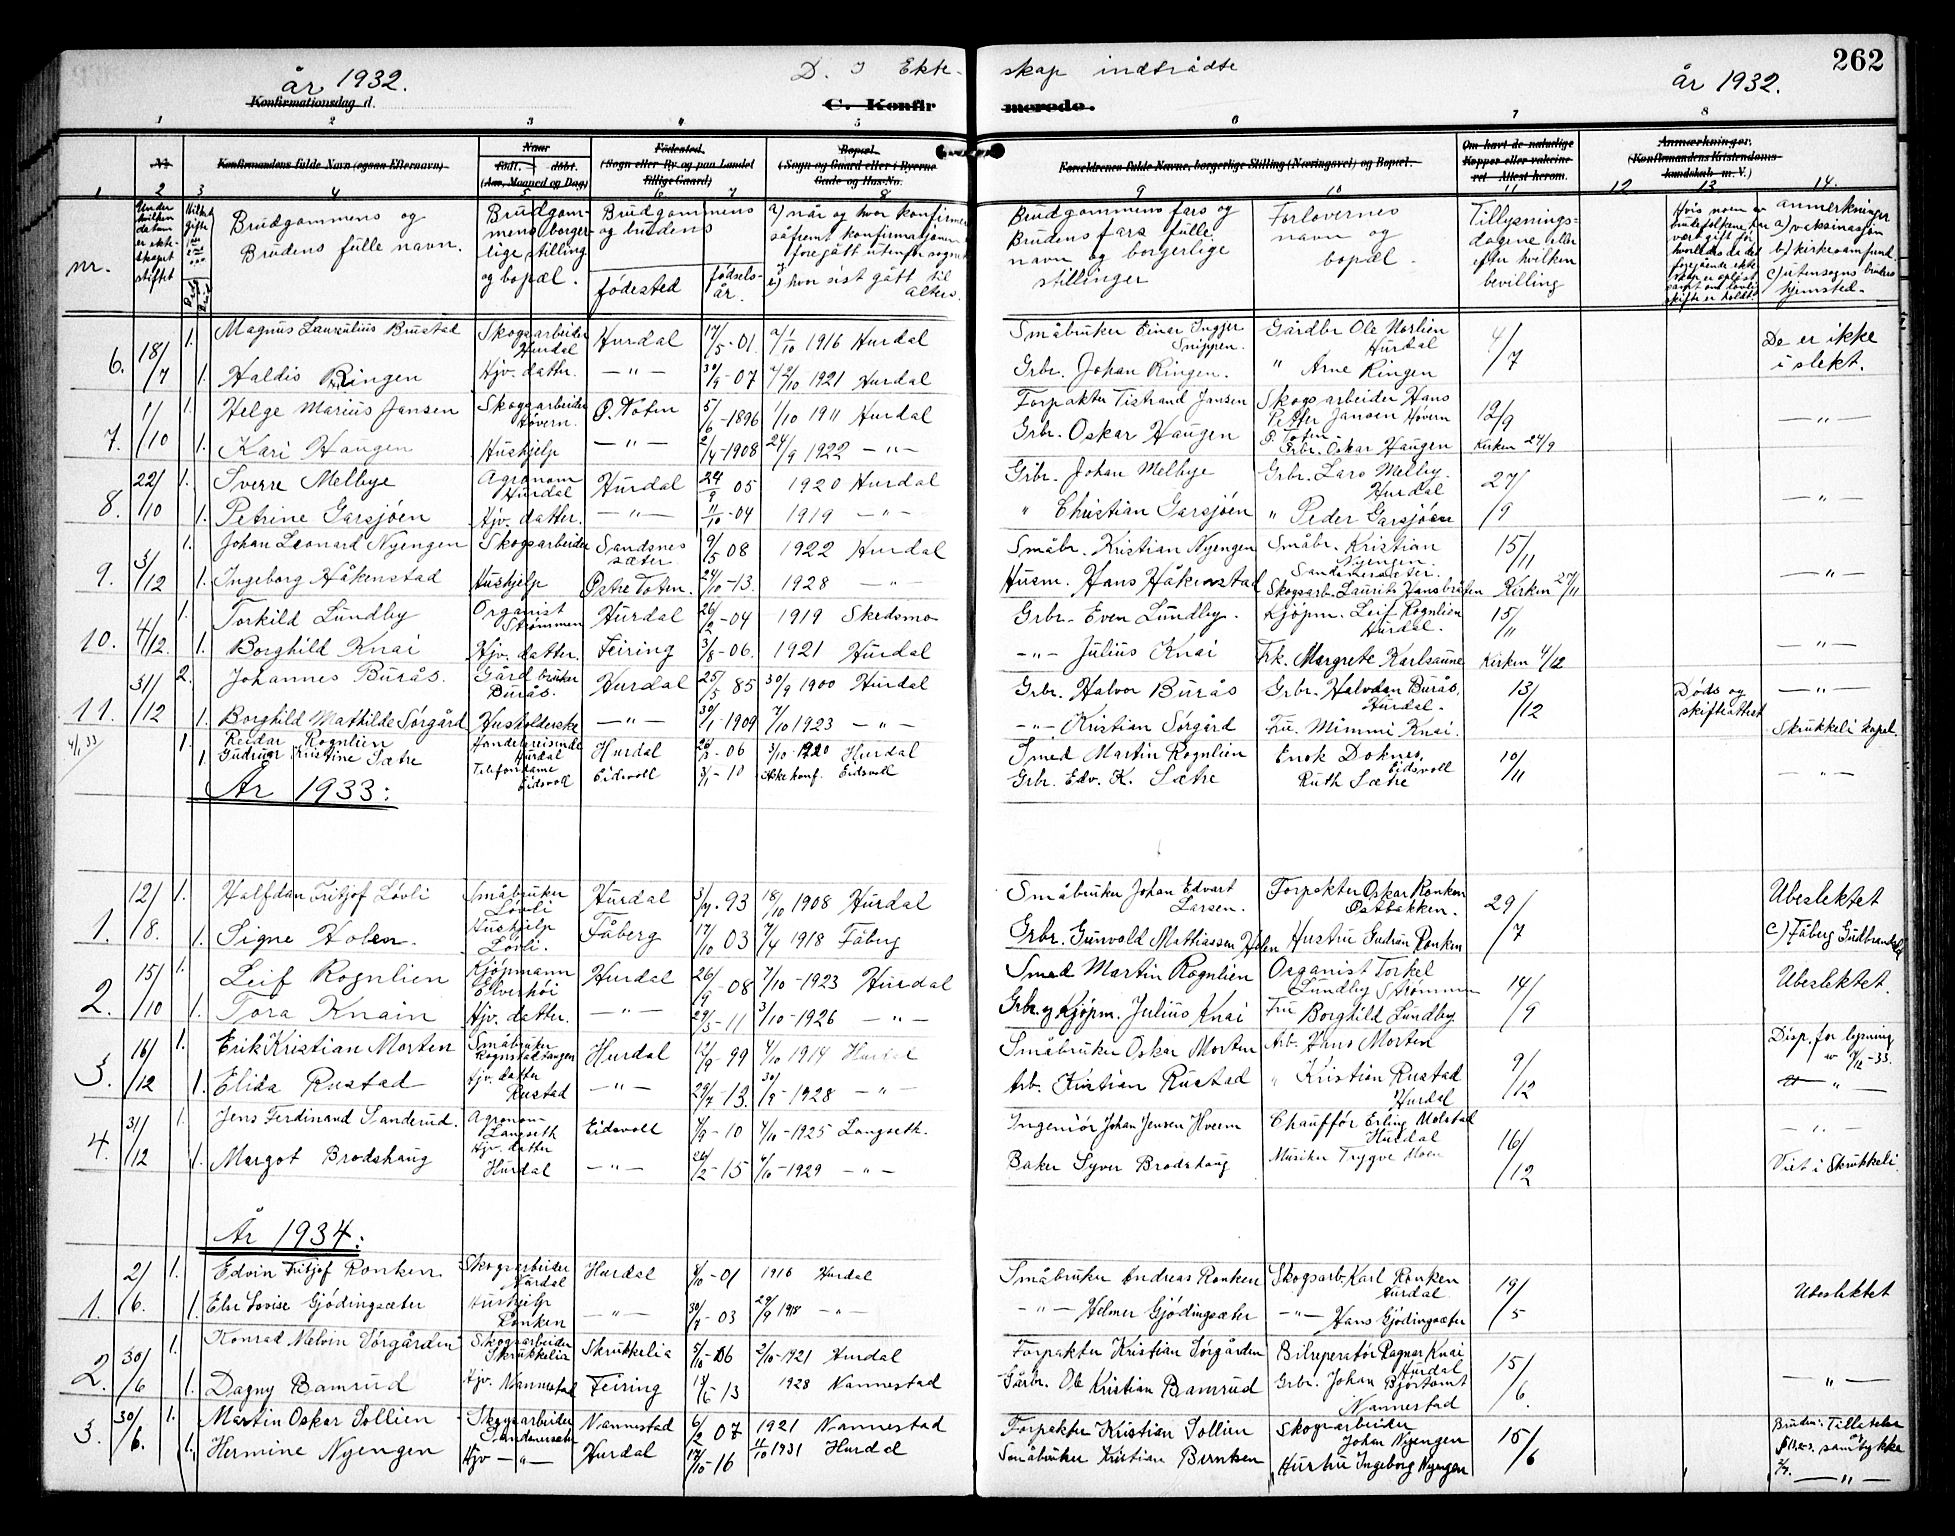 262
år 1932.
D. I Ekte-
skap indtrådte
år 1932.
Konfirmationsdag d.
C. Konfir
merede.
1 2 3 4 5 6 7 8
No.
Konfirmandens fulde Navn (egson Efternavn)
Naar
født. døbt.
(Aar, Maaned og Dag)
Fødested.
(Sogn eller By og paa Landet
tillige Gaard)
Bopæl.
(Sogn og Gaard eller i Byerne
Gade og Hus-No.
Forældrenes fulde Navne, borgerlige Stilling (Næringsvei) og Bopæl.
Om havt de naturlige
Kopper eller vakcine-
ret - Attest herom.
Anmærkninger.
(Konfirmandens Kristendoms-
kundskab m. V.)
1 2 3 4 5 6 7 8 9 10 11 12 13 14.
nr.
Under hvilken datum er ekteskapet stiftet
Brudgommens og
Brudens fulle navn.
Brudgommens borgerlige stilling og bopæl.
Brudgommens og brudens
fødested
fødselsår.
a) når og hvor konfirmert
såfremt konfirmasjonen
foregått utenfor sognet
b) hvor sist gått til alters.
Brudgommens fars og
Brudens fars fulle
navn og borgerlige
stillinger
Forlovernes
navn og
bopæl.
Tillysnings-
dagene eller
efter hvilken
bevilling
Hvis noen av brudefolkene har vært gift før
anmerkninger
a) vaksinasjon
b) kirkesamfund
c) utensogns brudens
hjemsted.
6. 18/7 1. Magnus Laurulius Brustad Skogsarbeider Hurdal Hurdal 17/5-01. 2/10 1916 Hurdal Småbruker Einar Ingjer Snippen. Gårdbr Ole Norlien Hurdal 4/7 De er ikke i slekt.
1. Haldis Ringen Hjv. datter. —"— 30/9-07 2/10 1921 Hurdal Grbr. Johan Ringen. " Arne Ringen
7. 1/10 1. Helge Marius Jansen Skogsarbeider Høvern. Ø. Toten 5/6-1896 1/10 1911 Hurdal Forpakter Tistrand Jansen Skogsarbeider Hans Petter Jansen Høvern Ø. Toten 12/9 —"—
1. Kari Haugen Hushjelp —"— 2/4-1908 24/9 1922 —"— Grbr. Oskar Haugen Grbr. Oskar Haugen Kirken 24/9
8. 22/10 1. Sverre Melbye Agronom Hurdal Hurdal 24/9 05 1920 Hurdal Grbr. Johan Melbye Grbr. Lars Melby. Hurdal 27/9 —"—
1. Petrine Garsjøen Hjv. datter. —"— 11/10-04 1919 —"— " Christian Garsjøen " Peder Garsjøen
9. 3/12 1. Johan Leonard Nyengen Skogsarbeider Sandsnes sæter 9/5 08 1922 Hurdal Småbr. Kristian Nyengen Småbr. Kristian Nyengen. 15/11 —"—
1. Ingeborg Håkenstad Hushjelp Østre Toten. 24/10-13. 1928 —"— Husm. Hans Håkenstad Skogsarb. Laurits Hansbråten Kirken 27/11
10. 4/12. 1. Torkild Lundby Organist Strømmen Hurdal 26/2-04 1919 Skedsmo Grbr. Even Lundby. Kjøpm. Leif Rognlien Hurdal. 15/11 —"—
1. Borghild Knai Hjv. datter. Feiring 3/8-06. 1921 Hurdal —"— Julius Knai Frk. Margrete Karlsaune Kirken 4/12
11. 31/12 2. Johannes Burås. Gårdbruker Burås. Hurdal 25/5 85 30/9 1900 Hurdal Grbr. Halvor Burås Grbr. Halvdan Burås, Hurdal. 13/12 Døds og skifteattest —"—
1. Borghild Mathilde Sørgård Husholderske —"— 30/1 1909 7/10 1923 —"— —"— Kristian Sørgård Fru. Mimmi Knai. Skrukkeli kapel
4/1 33 1. Reidar Rognlien Handelsreisende Hurdal Hurdal 26/2-06 3/10-1920 Hurdal Smed Martin Rognlien Enok Doknes, Eidsvoll 10/11 —"—
1. Gudrun Kristine Sætre Telefondame Eidsvoll Eidsvoll 3/1-10 Ikke konf. Eidsvoll Grbr. Edv. K. Sætre Ruth Sætre
År 1933:
1. 12/8. 1. Halfdan Fritjof Løvli Småbruker Løvli Hurdal 3/7-93 18/10 1908 Hurdal Småbruker Johan Edvart Larsen. Forpakter Oskar Ronken Østbakken. 29/7 Ubeslektet
1. Signe Holen. Hushjelp Løvli. Fåberg 17/10 03 7/4 1918 Fåberg Grbr. Gunvold Mathiassen Holen Hustru Gudrun Ronken c) Fåberg Gudbrandsd
2. 15/10 1. Leif Rognlien Kjøpmann Elverhøi Hurdal 26/9-08 7/10-1923 Hurdal Smed Martin Rognlien Organist Torkel Lundby Strømmen 14/9 Ubeslektet.
1. Tora Knain Hjv. datter. —"— 29/5-11 3/10-1926 —"— Grbr. og Kjøpm. Julius Knai Fru Borghild Lundby
3. 16/12 1. Erik Kristian Morten Småbruker Rognstadtangen Hurdal 12/9-99 4/10 1914 Hurdal Småbruker Oskar Morten Arb. Hans Morten 9/12 Disp. for lysning av 9/12-33.
1. Elida Rustad Hjv. datter Rustad —"— 29/7-13. 30/9-1928 —"— Arb. Kristian Rustad " Kristian Rustad Hurdal —"—
4. 31/12 1. Jens Ferdinand Sanderud. Agronom Langseth Eidsvoll 7/9-10 4/10-1925 Langseth. Ingeniør Johan Jensen Hverm Chauffør Erling Molstad Hurdal 16/12 —"—
1. Margot Brodshaug Hjv. datter Hurdal —"— 26/2-15 6/10-1929 —"— Baker Syver Brodshaug Musiker Trygve Moen Viet i Skrukkeli
År 1934:
1. 2/6. 1. Edvin Fritjof Ronken. Skogsarbeider Hurdal Hurdal 4/10-01 1916 Hurdal Småbruker Andreas Ronken Skogsarb. Karl Ronken Hurdal 19/5 Ubeslektet
1. Eln Lovise Gjødingsæter Hushjelp Ronken —"— 30/7-03 29/9 1918 —"— —"— Helmer Gjødingsæter —"— Hans Gjødingsæter
2. 30/6 1. Konrad Melvin Sørgården Skogsarbeider Skrukkelia Skrukkelia 5/10-06 2/10-1921 Hurdal Forpakter Kristian Sørgården Bilreperatør Ragnar Knai Hurdal 15/6. —"—
1. Dagny Bamrud Hjv. Nannestad Feiring 13 1928 Nannestad Gårbr. Ole Kristian Bamrud Grbr. Johan Bjørtomt Nannestad
3. 30/6. 1. Martin Oskar Sollien Skogsarbeider Nannestad 6/2 07 1921 Nannestad Forpakter Kristian Sollien Skogsarbeider Johan Nyengen 15/6 Brudens Tillatelse samtykke
1. Hermine Nyengen Hjv —"— Hurdal 17/10-16 1/10 1931 Hurdal Småbruker Kristian Berntsen Hustru Ingeborg Nyengen —"—